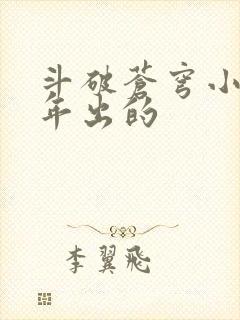 斗破苍穹小
年出的
李翼飞